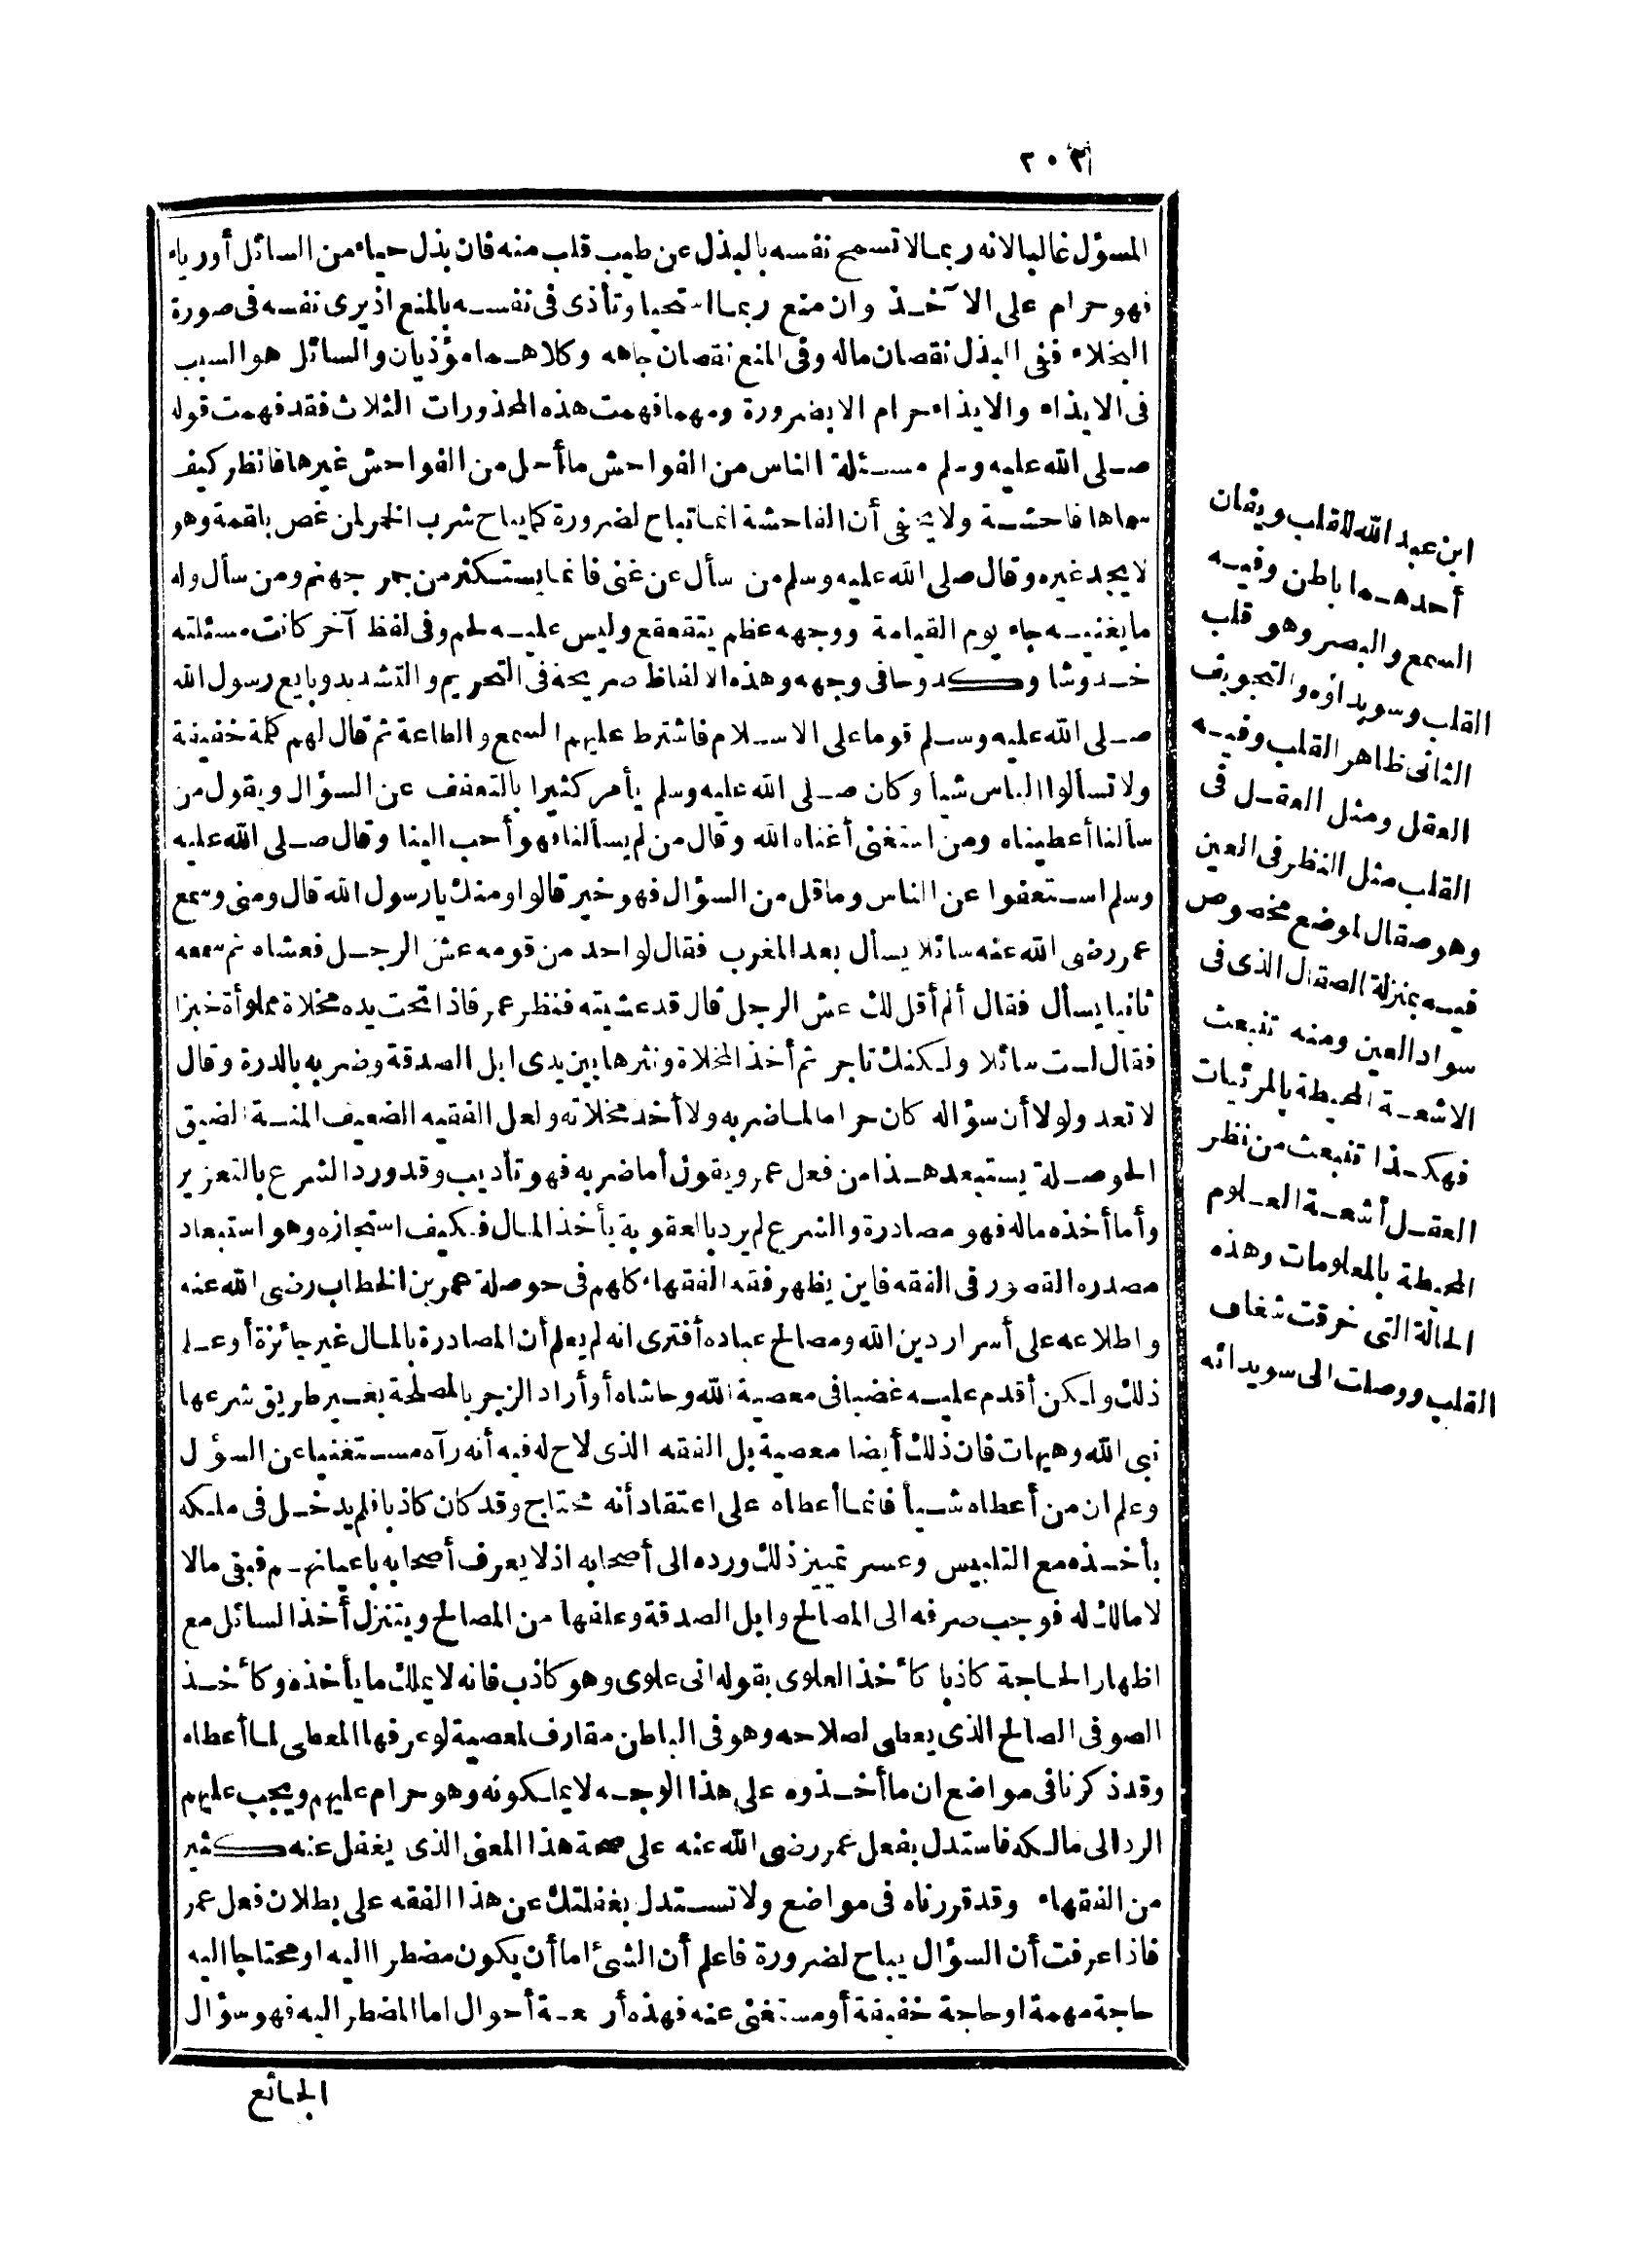 ٢٠٢
المسؤل غالبا لانه ربما لا تسمح نفسه بالبذل عن طيب قلب منه فان بذل حياء من السائل أو رياء
فهو حرام على الآخذ وان منع ربما استحيا وتأذى فى نفسه بالمنع اذ يرى نفسه فى صورة
البخلاء ففى البذل نقصان ماله وفى المنع نقصان جاهه وكلاهما مؤذيان والسائل هو السبب
فى الايذاء والايذاء حرام الا بضرورة ومهما فهمت هذه المحذورات الثلاث فقد فهمت قوله
صلى الله عليه وسلم مسئلة الناس من الفواحش ما أحل من الفواحش غيرها فانظر كيف
سماها فاحشة ولا يخفى أن الفاحشة انما تباح لضرورة كما يباح شرب الخمر لمن غص بلقمة وهو
لا يجد غيره وقال صلى الله عليه وسلم من سأل عن غنى فانما يستكثر من جمر جهنم ومن سأل وله
ما يغنيه جاء يوم القيامة ووجهه عظم يتقعقع وليس عليه لحم وفى لفظ آخر كانت مسئلته
خدوشا وكدوحا فى وجهه وهذه الالفاظ صريحة فى التحريم والتشديد وبايع رسول الله
صلى الله عليه وسلم قوما على الاسلام فاشترط عليهم السمع والطاعة ثم قال لهم كلمة خفيفة
ولا تسألوا الناس شيأ وكان صلى الله عليه وسلم يأمر كثيرا بالتعفف عن السؤال ويقول من
سألنا أعطيناه ومن استغنى أغناه الله وقال من لم يسألنا فهو أحب الينا وقال صلى الله عليه
وسلم استعفوا عن الناس وما قل من السؤال فهو خير قالوا ومنك يا رسول الله قال ومنى وسمع
عمر رضى الله عنه سائلا يسأل بعد المغرب فقال لواحد من قومه عش الرجل فعشاه ثم سمعه
ثانيا يسأل فقال ألم أقل لك عش الرجل قال قد عشيته فنظر عمر فاذا تحت يده مخلاة مملوأة خبزا
فقال لست سائلا ولكنك تاجر ثم أخذ المخلاة ونثرها بين يدى ابل الصدقة وضربه بالدرة وقال
لا تعد ولولا أن سؤاله كان حراما لما ضربه ولا أخذ مخلاته ولعل الفقيه الضعيف المنة الضيق
الحوصلة يستبعد هذا من فعل عمر ويقول أما ضربه فهو تأديب وقد ورد الشرع بالتعزير
وأما أخذه ماله فهو مصادرة والشرع لم يرد بالعقوبة بأخذ المال فكيف استجازه وهو استبعاد
مصدره القصور فى الفقه فاين يظهر فقه الفقهاء كلهم فى حوصلة عمر بن الخطاب رضى الله عنه
واطلاعه على أسرار دين الله ومصالح عباده أفترى انه لم يعلم أن المصادرة بالمال غير جائزة أو علم
ذلك ولكن أقدم عليه غضبا فى معصية الله وحاشاه أو أراد الزجر بالمصلحة بغير طريق شرعها
نبى الله وهيهات فان ذلك أيضا معصية بل الفقه الذى لاح له فيه أنه رآه مستغنيا عن السؤال
وعلم ان من أعطاه شيأ فانما أعطاه على اعتقاد أنه محتاج وقد كان كاذبا فلم يدخل فى ملكه
بأخذه مع التلبيس وعسر تمييز ذلك ورده الى أصحابه اذ لا يعرف أصحابه باعيانهم فبقى مالا
لا مالك له فوجب صرفه الى المصالح وابل الصدقة وعلفها من المصالح ويتنزل أخذ السائل مع
اظهار الحاجة كاذبا كأخذ العلوى بقوله انى علوى وهو كاذب فانه لا يملك ما يأخذه وكأخذ
الصوفى الصالح الذى يعطى لصلاحه وهو فى الباطن مقارف لمعصية لو عرفها المعطى لما أعطاه
وقد ذكرنا فى مواضع ان ما أخذوه على هذا الوجه لا يملكونه وهو حرام عليهم ويجب عليهم
الرد الى مالكه فاستدل بفعل عمر رضى الله عنه على صحة هذا المعنى الذى يغفل عنه كثير
من الفقهاء وقد قررناه فى مواضع ولا تستدل بغفلتك عن هذا الفقه على بطلان فعل عمر
فاذا عرفت أن السؤال يباح لضرورة فاعلم أن الشئ اما أن يكون مضطرا اليه او محتاجا اليه
حاجة مهمة او حاجة خفيفة أو مستغنى عنه فهذه أربعة أحوال اما المضطر اليه فهو سؤال
الجائع
ابن عبد الله للقلب ويفان
أحدهما باطن وفيه
السمع والبصر وهو قلب
القلب وسويداؤه والتجويف
الثانى ظاهر القلب وفيه
العقل ومثل العقل فى
القلب مثل النظر فى العين
وهو صقال لموضع مخصوص
فيه بمنزلة الصقال الذى فى
سواد العين ومنه تنبعث
الاشعة المحيطة بالمرئيات
فهكذا تنبعث من نظر
العقل أشعة العلوم
المحيطة بالمعلومات وهذه
الحالة التى خرقت شغاف
القلب ووصلت الى سويدائه